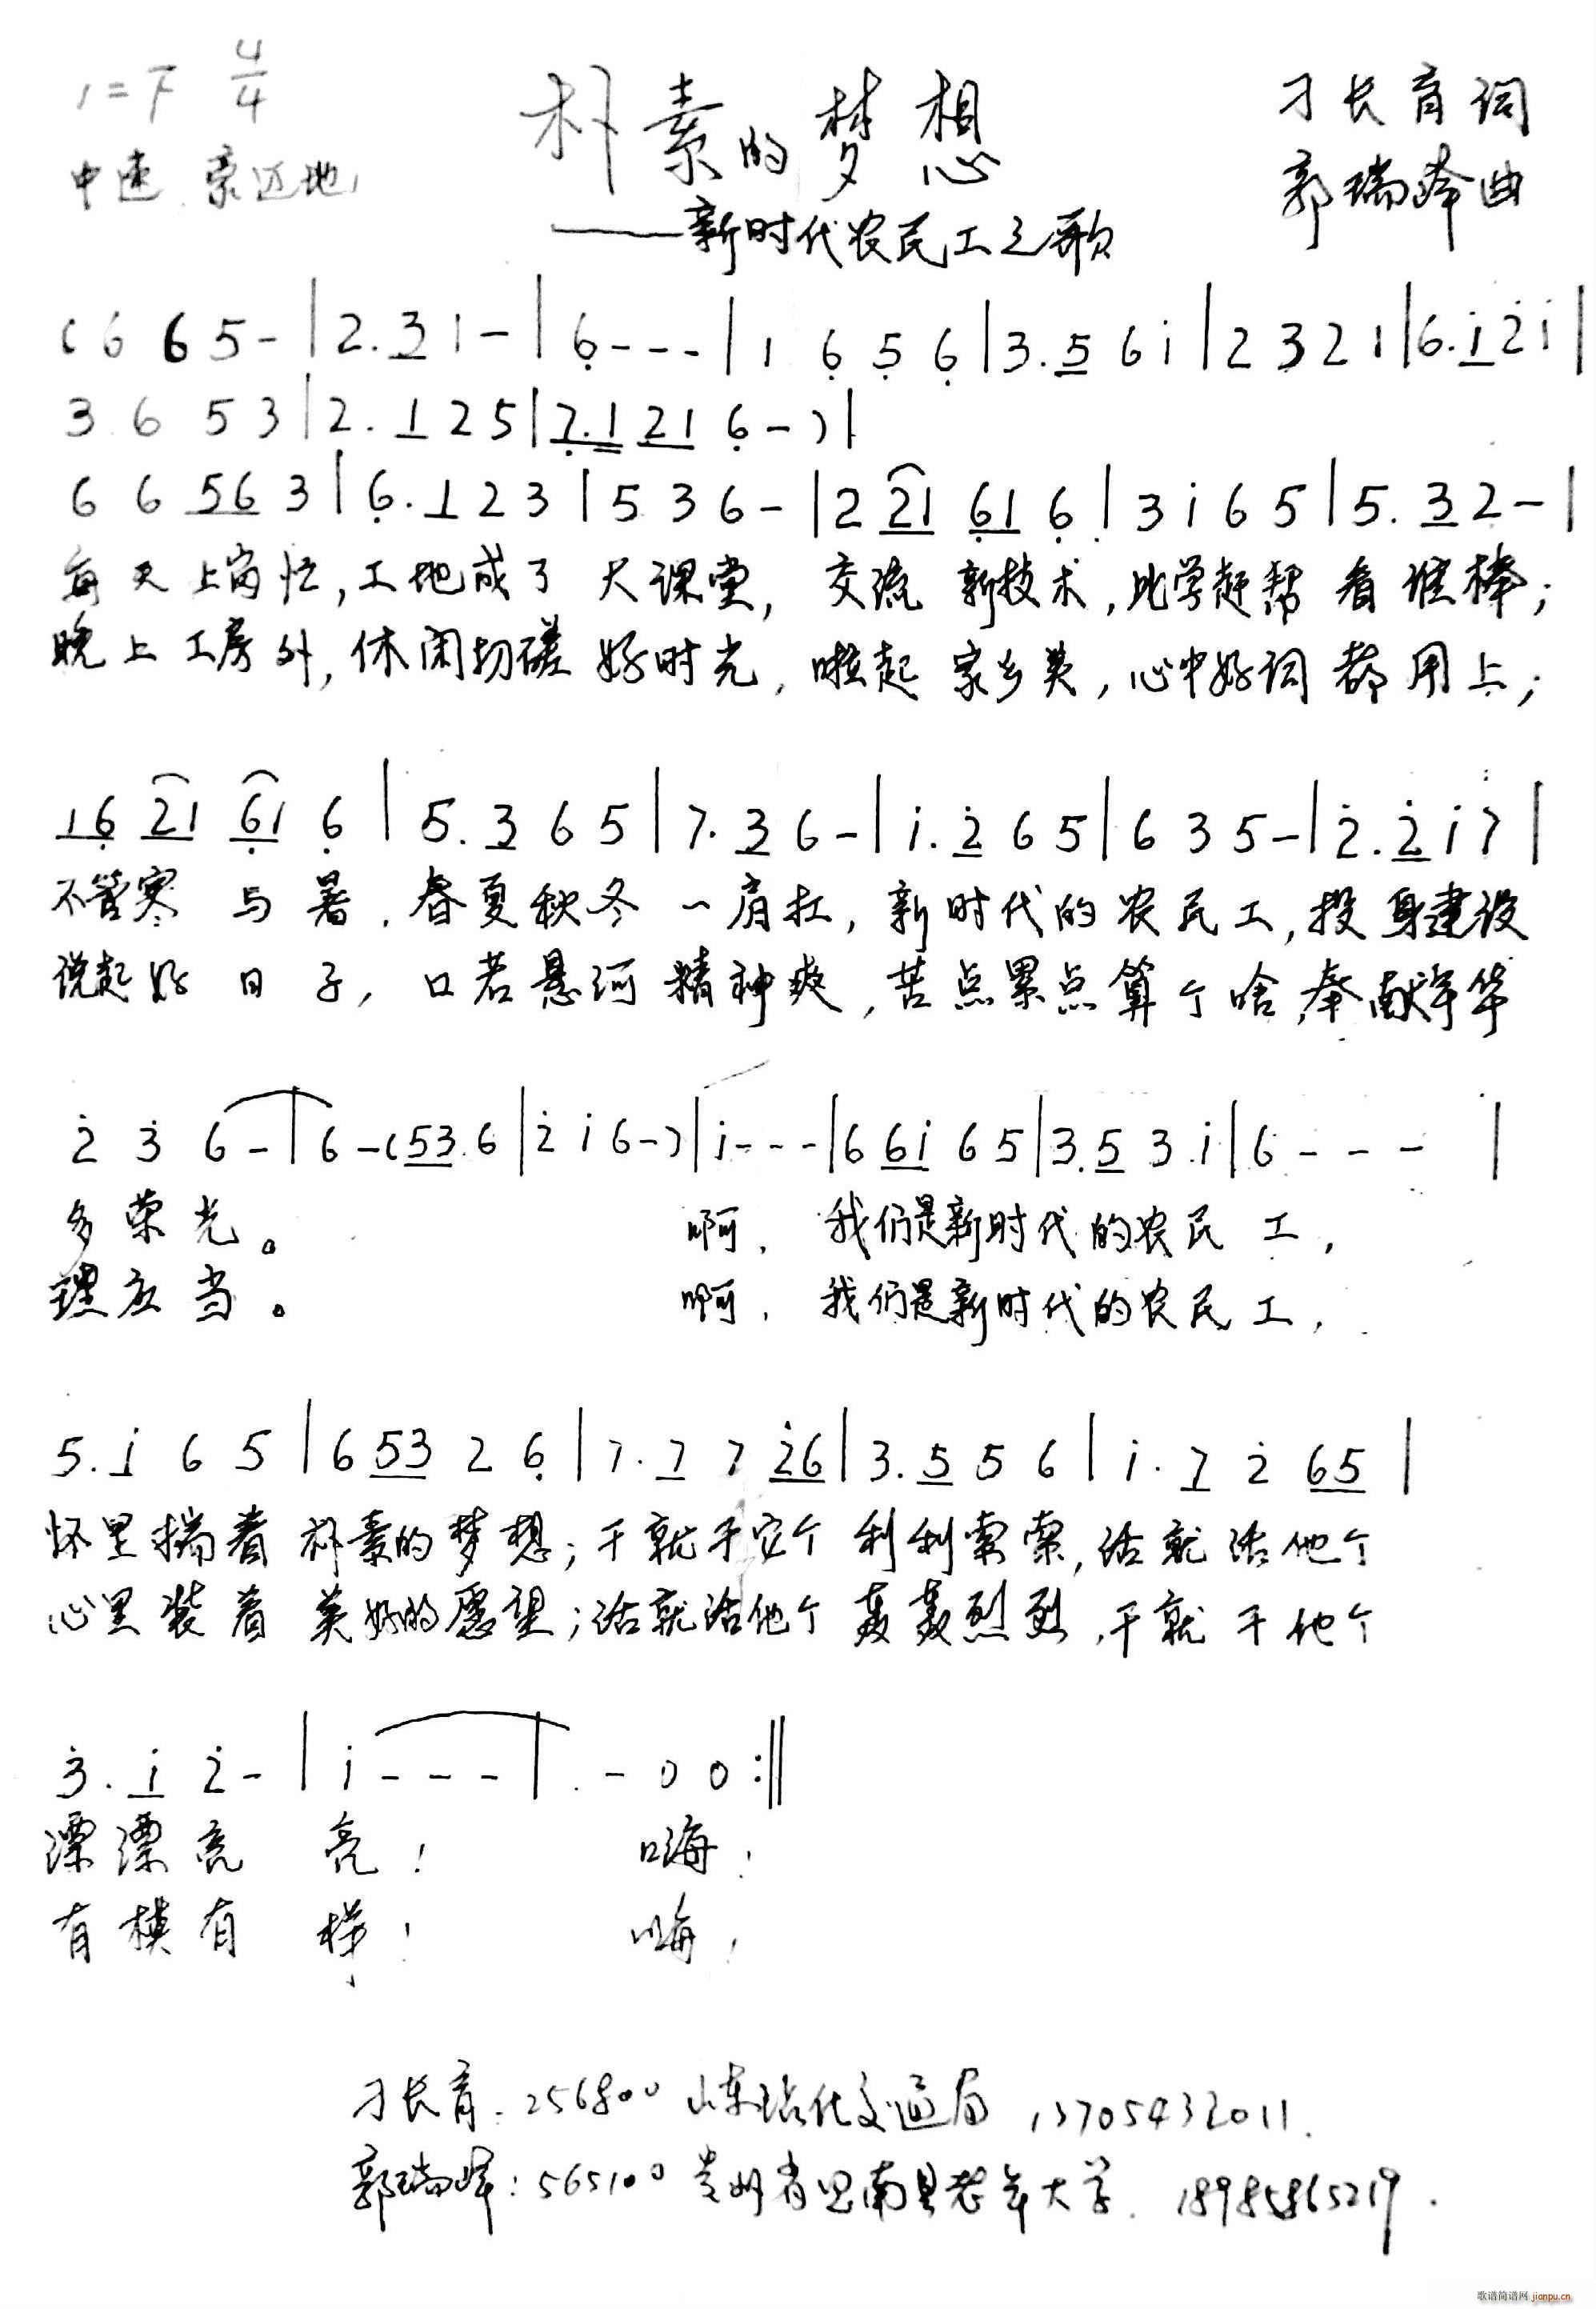 1=F 4/4
朴素的梦想
刁长育词
中速 豪迈地
郭瑞峰曲
——新时代农民工之歌
(6 6 5 - | 2. 3 1 - | 6 - - - | 1 6 5 6 | 3. 5 6 i | 2 3 2 1 | 6. i 2 i |
3 6 5 3 | 2. 1 2 5 | 7. 1 2 1 6 - ) |
6 6 5 6 3 | 6. 1 2 3 | 5 3 6 - | 2 2 1 6 1 6 | 3 i 6 5 | 5. 3 2 - |
每天上岗忙,工地成了大课堂,交流新技术,比学赶帮看谁棒;
晚上工房外,休闲切磋好时光,啦起家乡美,心中好词都用上;
1 6 2 1 6 1 6 | 5. 3 6 5 | 7. 3 6 - | i. 2 6 5 | 6 3 5 - | 2. 2 i 7 |
不管寒与暑,春夏秋冬一肩扛,新时代的农民工,投身建设
说起好日子,口若悬河精神爽,苦点累点算个啥,奉献年华
2 3 6 - | 6 - (5 3 6 | 2 i 6 - ) | i - - - | 6 6 i 6 5 | 3. 5 3 i | 6 - - - |
多荣光。 啊, 我们是新时代的农民工,
理应当。 啊, 我们是新时代的农民工,
5. i 6 5 | 6 5 3 2 6 | 7. 7 7 2 6 | 3. 5 5 6 | i. 7 2 6 5 |
怀里揣着朴素的梦想;干就干它个利利索索,活就活他个
心里装着美好的愿望;活就活他个轰轰烈烈,干就干他个
3. i 2 - | i - - - | - 0 0 :||
漂漂亮亮! 嗨!
有模有样! 嗨!
刁长育:256800 山东沾化交通局 13705432011.
郭瑞峰:565100 贵州省思南县老年大学. 18985865219.
歌谱简谱网 jianpu.cn